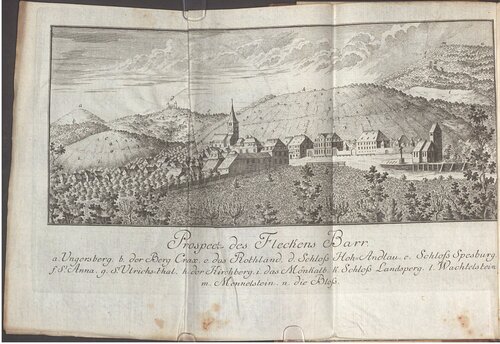 Prospect des Fleckens Barr.
a. Ungersberg. b. der Berg Crax. c. das Rothland. d. Schloß Hoh-Andlau. e. Schloß Spesburg
f. St. Anna. g. St. Ulrichs-thal. h. der Kirchberg. i. das Mönkalb. k. Schloß Landsperg. l. Wachtelstein
m. Mennelstein. n. die Bloß.